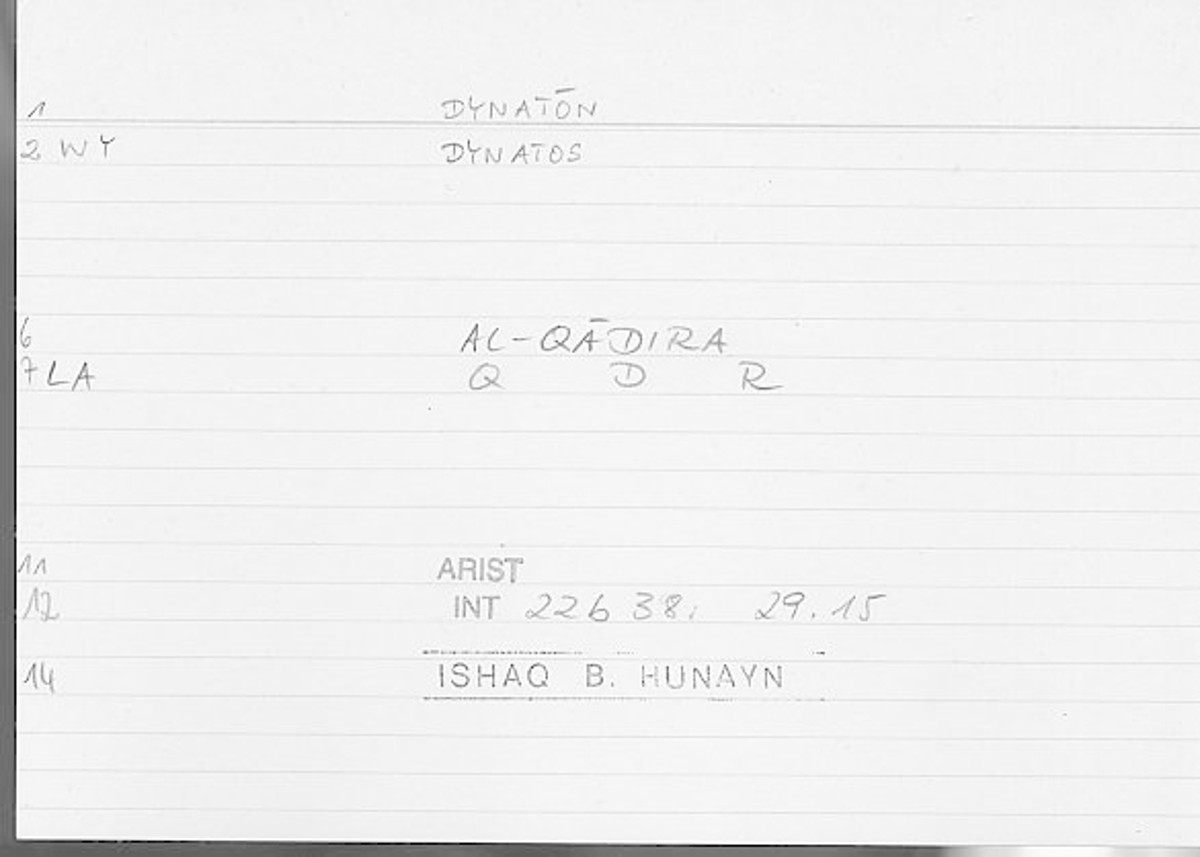 1 DYNATŌN
2 WY DYNATOS
6 AL-QĀDIRA
7 LA Q D R
11 ARIST
12 INT 22b 38; 29.15
14 ISHAQ B. HUNAYN